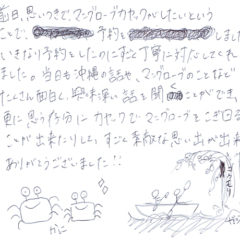 前日、思いつきでマングローブカヤックがしたいという
ことで、予約をしました
いきなり予約をしたのにすごく丁寧に対応してくれ
ました。当日も沖縄の話や、マングローブのことなど
たくさん面白く、興味深い話を聞くことができ、
更に思う存分にカヤックでマングローブをこぎ回る
ことが出来たりして、すごく素敵な思い出が出来
ありがとうございました!!
カニ
カニ